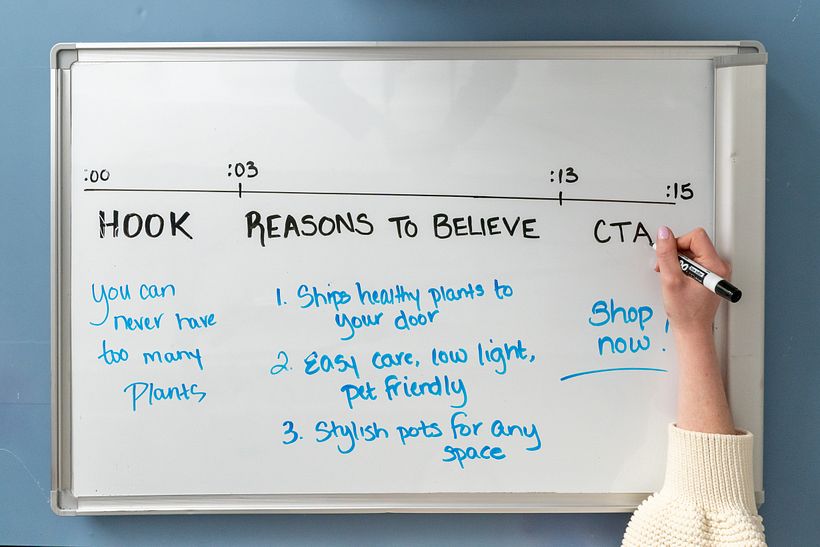 :00
:03
:13
:15
HOOK
REASONS TO BELIEVE
CTA
you can
never have
too many
Plants
1. Ships healthy plants to
your door
2. Easy care, low light,
pet friendly
3. Stylish pots for any
space
Shop
now!